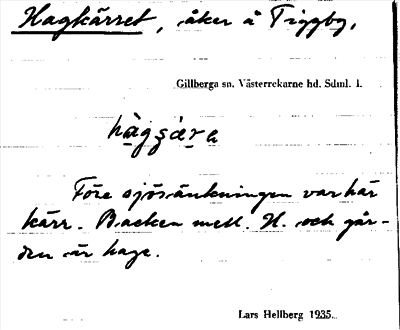 Hagkärret, åker å Tiggby,
Gillberga sn. Västerrekarne hd. Sdml. 1.
hàgʂæ̀ra
Före sjösänkningen var här
kärr. Backen mell. H. och går-
den är hage.
Lars Hellberg 1935.